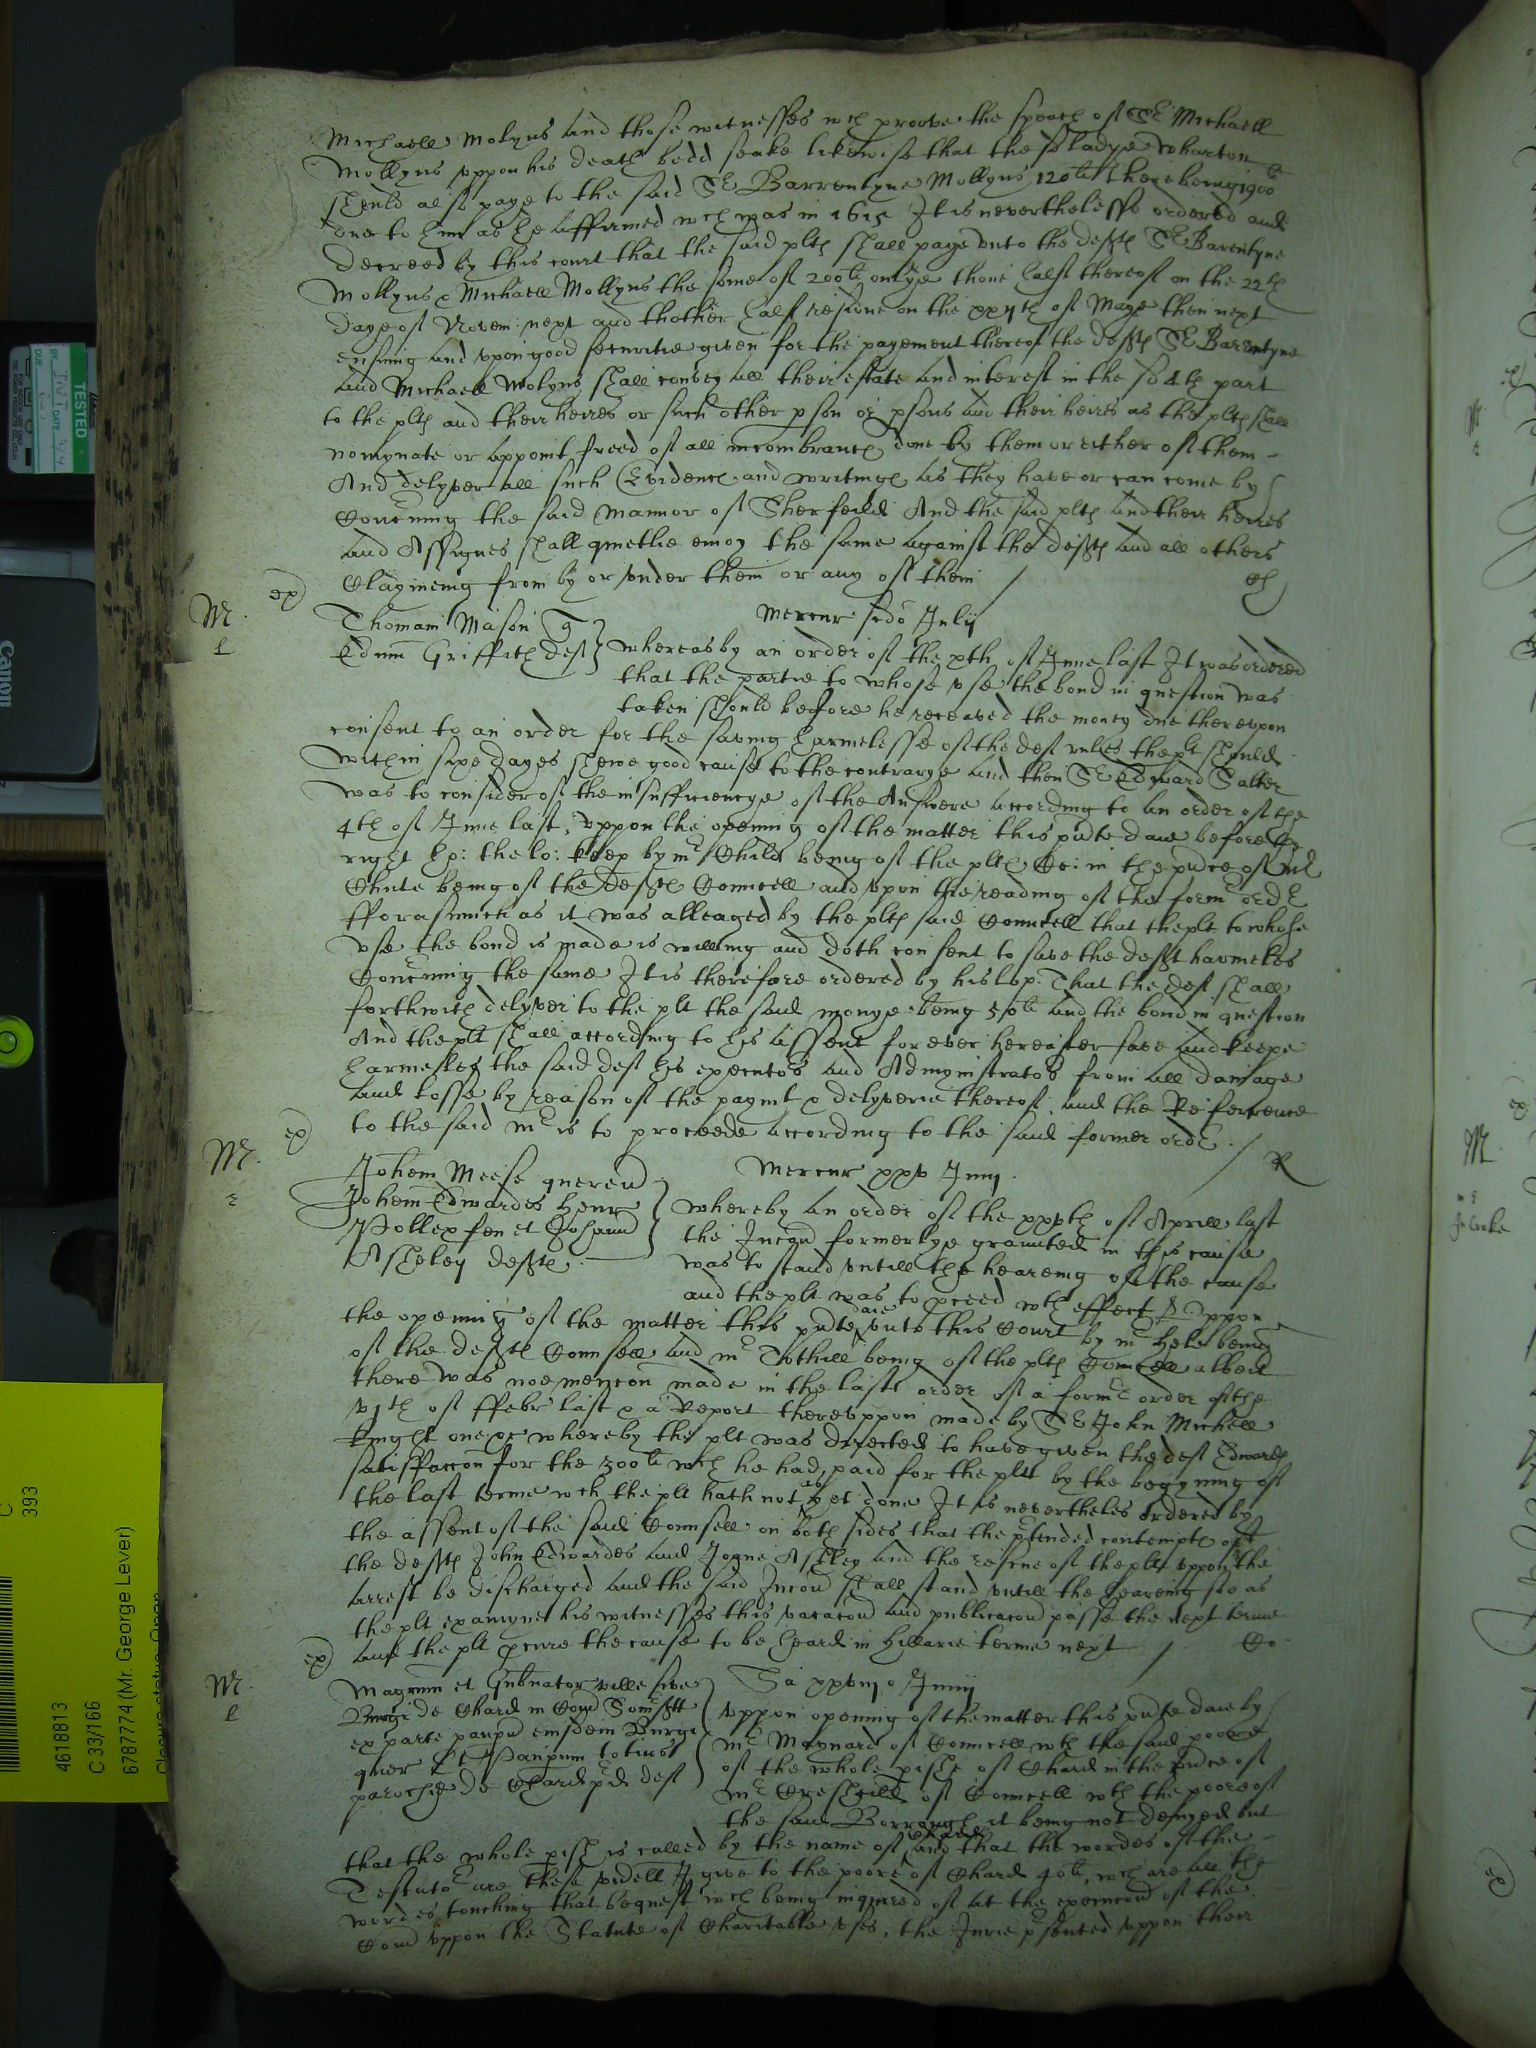 Michaell Molyns and those witnesses wch proove the speach of Sr Michaell
Mollyns uppon his death bedd spake likewise that the sd ladye Wharton
should also paye to the said Sr Barrentyne Mollyns 120li there being 1900li
due to him as he affirmed wch was in 1615 It is neverthelesse ordered and
decreed by this court that the said plts shall paye unto the defts Sr Barentyne
Mollyns & Michaell Mollyns the some of 200li onlye thone halfe thereof on the 22th
daye of Novem: next and thother halfe residue on the xxijth of Maye then next
ensuing and upon good securitie given for the payement thereof the defts Sr Barentyne
and Michaell Molyns shall convey all their estate and interest in the sd 4th part
to the plts and their heires or such other pson or psons and their heires as the plts shall
nomynate or appoint freed of all incombrances done by them or either of them
And delyver all such Evidences and writings as they have or can come by
Concerning the said Mannor of Sherfeild And the said plts and their heires
and Assignes shall quietlie enioy the same against the defts and all others
Claymeing from by or under them or any of them
M. ex)
Thomam Mason q
Edrum Griffith deft
Mercur scdo Julij
Whereas by an order of the xth of June last It was ordered
that the partie to whose use the bond in question was
taken should before he receaved the money due thereupon
consent to an order for the saving harmelesse of the deft unles the plt should
within sixe dayes shewe good cause to the contrarye and then Sr Edward Salter
was to consider of the insufficiencye of the Answere according to an order of the
4th of June last, uppon the opening of the matter this pnte daie before the
right ho: the lo: keep by mr Childe being of the plts Co: in the pnce of mr
Chute being of the defts Councell and upon the reading of the form ordr
fforasmuch as it was alleaged by the plts said Councell that the plt to whose
use the bond is made is willing and doth consent to save the deft harmeles
Concrning the same It is therefore ordered by his lop: That the deft shall
forthwith delyver to the plt the said monye being 50li and the bond in question
And the plt shall according to his assent for ever hereafter save and keepe
harmeles the said deft his executors and Admynistrators from all damage
and losse by reason of the paymt & delyverie thereof. and the Referrence
to the said mr is to proceede according to the said former ordr. R
M. ex)
Johem Meese querend
Johem Edwardes henr
Pollexfen et Johann
Asheley defts
Mercur xxv Junij
Whereby an order of the xxxth of Aprill last
the Iniun formerlye graunted in this cause
was to stand untill the heareing of the cause
and the plt was to pceed wth effect & Uppon
the opening of the matter this pnte daie unto this Court by mr Hele being
of the defts Counsell and mr Tothill being of the plts Councell albeit
there was noe mencon made in the last order of a formr order of the
vjth of ffebr last & a Report thereuppon made by Sr John Michell
knight one &c whereby the plt was directed to have given the deft Edwards
satisfaccon for the 300li wch he had paid for the plt by the begynning of
the last terme wch the plt hath not as yet done It is nevertheles ordered by
the assent of the said Counsell on both sides that the prtended contempts of
the defts John Edwardes and Joane Ashley and the rescue of the plt uppon the
arrest be discharged and the said Iniun shall stand untill the heareing soe as
the plt examyne his witnesses this vacacon and publicacon passe the next terme
and the plt pcure the cause to be heard in hillarie terme next Co
M. ex)
Magrum et Gubnator ville sive
Burgi de Chard in Com Somrsett
ex parte paupu eiusdem Burgi
quer Et Paupum totius
parochie de Chard prd deft
Sa xxviijo Junij
Uppon opening of the matter this pnte daie by
mr Maynard of Councell wth the said poore
of the whole pishe of Chard in the pnce of
mr Cresheild of Councell wth the poore of
the said Borrough it being not denyed but
that the whole pish is called by the name of Chard and that the wordes of the
Testator are these videll I give to the poore of Chard 40li, wch are all the
wordes touching that bequest wch being inquired of at the execucon of the
Com uppon the Statute of Charitable uses, the Jurie prsented uppon their
TESTED
Canon
C
393
4618813
C 33/166
6787774 (Mr. George Lever)